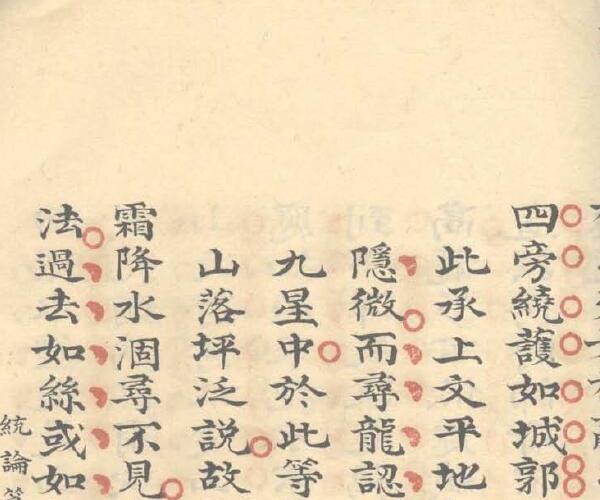 四旁繞䕶如城郭
此承上文平地
隱微而尋龍認
九星中於此等
山落坪泛說故
霜降水涸尋不見
法過去如絲或如
統論